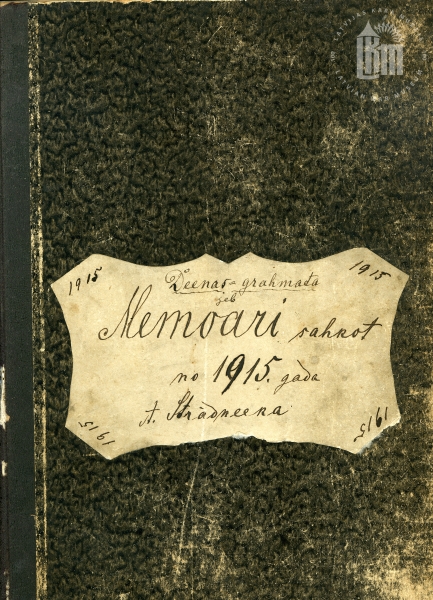 1915
1915
Deenas-grahmata
jeb
Memoari sahkot
no 1915. gada
A. Strādneeka
1915
1915